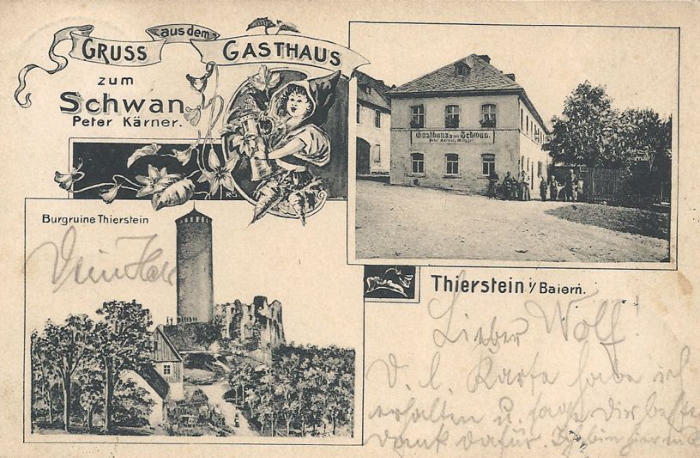 GRUSS aus dem GASTHAUS
zum
Schwan
Peter Kärner.
Gasthaus zum Schwan.
Burgruine Thierstein
Thierstein i/Baiern.
Lieber Wolf!
D. l. Karte habe ich
erhalten u. sage Dir
dank dafür. Ich bin hier